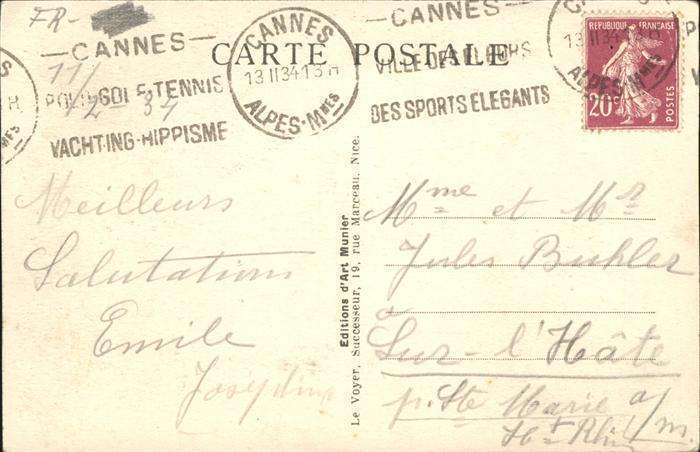 FR-
CARTE POSTALE
—CANNES—
POLO-GOLF-TENNIS
YACHTING-HIPPISME
11/
12-34
CANNES
13 II 34 13 H
ALPES-Mmes
—CANNES—
VILLE DES FLEURS
DES SPORTS ELEGANTS
REPUBLIQUE FRANÇAISE
20c
POSTES
13 II 34
ALPES-Mmes
Meilleurs
Salutations
Emile
Joséphine
Editions d'Art Munier
Le Voyer, Successeur, 19, rue Marceau, Nice.
Mme et Mr
Jules Buhler
Sur-l'Hâte
p. Ste Marie a/m.
Ht Rhin